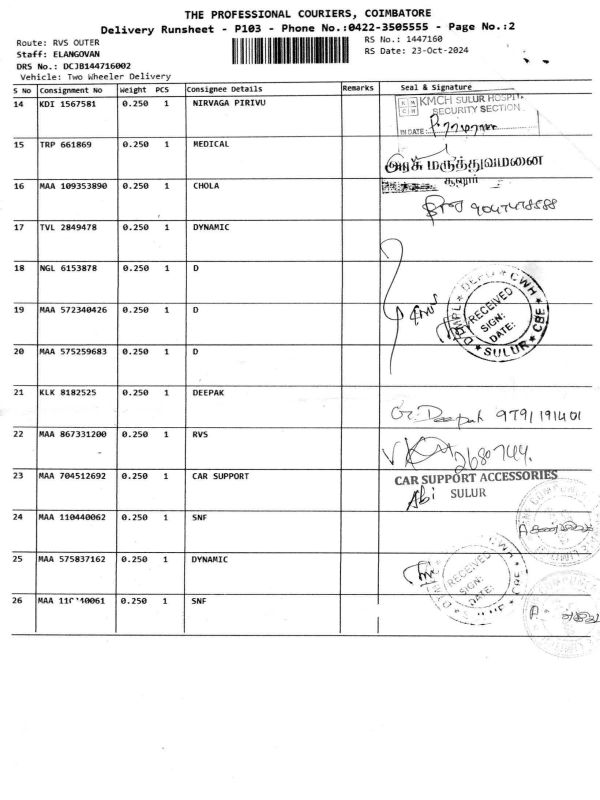 THE PROFESSIONAL COURIERS, COIMBATORE
Delivery Runsheet - P103 - Phone No.:0422-3505555 - Page No.:2
Route: RVS OUTER
RS No.: 1447160
Staff: ELANGOVAN
RS Date: 23-Oct-2024
DRS No.: DCJB144716002
Vehicle: Two Wheeler Delivery
S No Consignment No Weight PCS Consignee Details Remarks Seal & Signature
14 KDI 1567581 0.250 1 NIRVAGA PIRIVU
KMCH SULUR HOSPIT
SECURITY SECTION
IN DATE:
15 TRP 661869 0.250 1 MEDICAL
அரசு மருத்துவமனை
சூலூர்
16 MAA 109353890 0.250 1 CHOLA
9047478588
17 TVL 2849478 0.250 1 DYNAMIC
18 NGL 6153878 0.250 1 D
DEPO CWH
RECEIVED
SIGN:
DATE:
SULUR CBE
19 MAA 572340426 0.250 1 D
20 MAA 575259683 0.250 1 D
21 KLK 8182525 0.250 1 DEEPAK
G. Deepak 9791191401
22 MAA 867331200 0.250 1 RVS
2680744.
23 MAA 704512692 0.250 1 CAR SUPPORT
CAR SUPPORT ACCESSORIES
SULUR
Abi
24 MAA 110440062 0.250 1 SNF
25 MAA 575837162 0.250 1 DYNAMIC
RECEIVED
SIGN:
DATE:
26 MAA 110440061 0.250 1 SNF